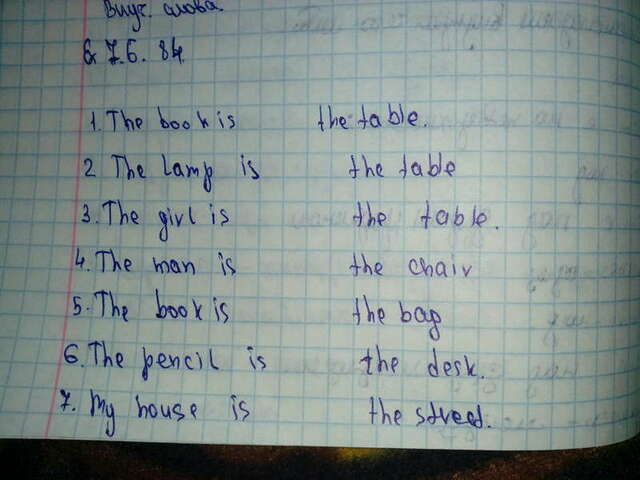 Виуч. слова.
7.6. 84.
1. The book is the table.
2 The lamp is the table
3. The girl is the table.
4. The man is the chair
5. The book is the bag
6. The pencil is the desk.
7. My house is the street.